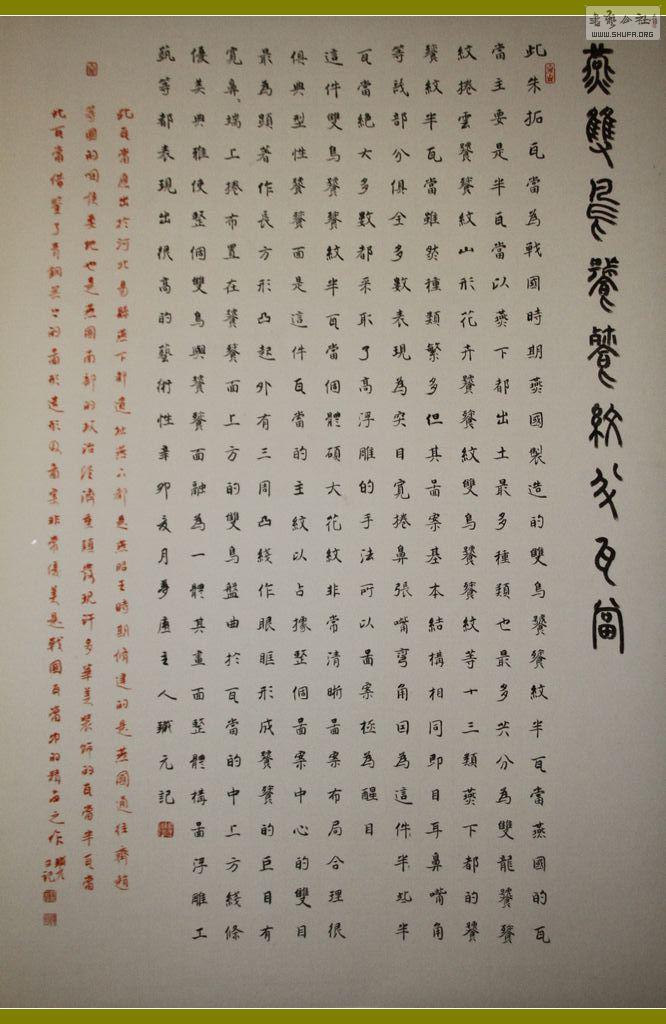 燕雙鳥饕餮紋半瓦當
此朱拓瓦當為戰國時期燕國製造的雙鳥饕餮紋半瓦當燕國的瓦
當主要是半瓦當以燕下都出土最多種類也最多共分為雙龍饕餮
紋捲雲饕餮紋山形花卉饕餮紋雙鳥饕餮紋等十三類燕下都的饕
餮紋半瓦當雖然種類繁多但其啚案基本結構相同即目耳鼻嘴角
等幾部分俱全多數表現為突目寬捲鼻張嘴彎角因為這件半瓦半
瓦當絕大多數都采取了高浮雕的手法所以啚案極為醒目
這件雙鳥饕餮紋半瓦當個體碩大花紋非常清晰啚案布局合理很
俱典型性饕餮面是這件瓦當的主紋以占據整個啚案中心的雙目
最為顯著作長方形凸起外有三周凸綫作眼眶形成饕餮的巨目有
寬鼻端上捲布置在饕餮面上方的雙鳥盤曲於瓦當的中上方綫條
優美典雅使整個雙鳥與饕餮面融為一體其畫面整體構啚浮雕工
藝等都表現出很高的藝術性辛卯亥月夢廬主人鐵元記
此瓦當應出於河北易縣燕下都遺址燕下都是燕昭王時期修建的是燕國通往齊趙
等國的咽喉要地也是燕國南部的政治經濟重鎮發現許多華美裝飾的瓦當半瓦當
此瓦當借鑒了青銅器上的啚形造形及啚案非常優美是戰國瓦當中的精品之作
又記
書藝公社
WWW.SHUFA.ORG